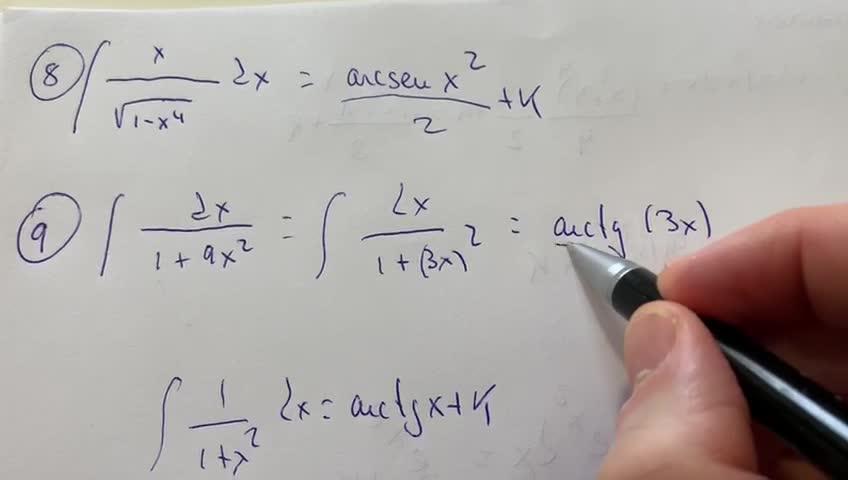 ⑧ ∫ x/√(1-x⁴) dx = arcsen x²/2 + K
⑨ ∫ dx/(1+9x²) = ∫ dx/(1+(3x)²) = arctg (3x)
∫ 1/(1+x²) dx = arctg x + K